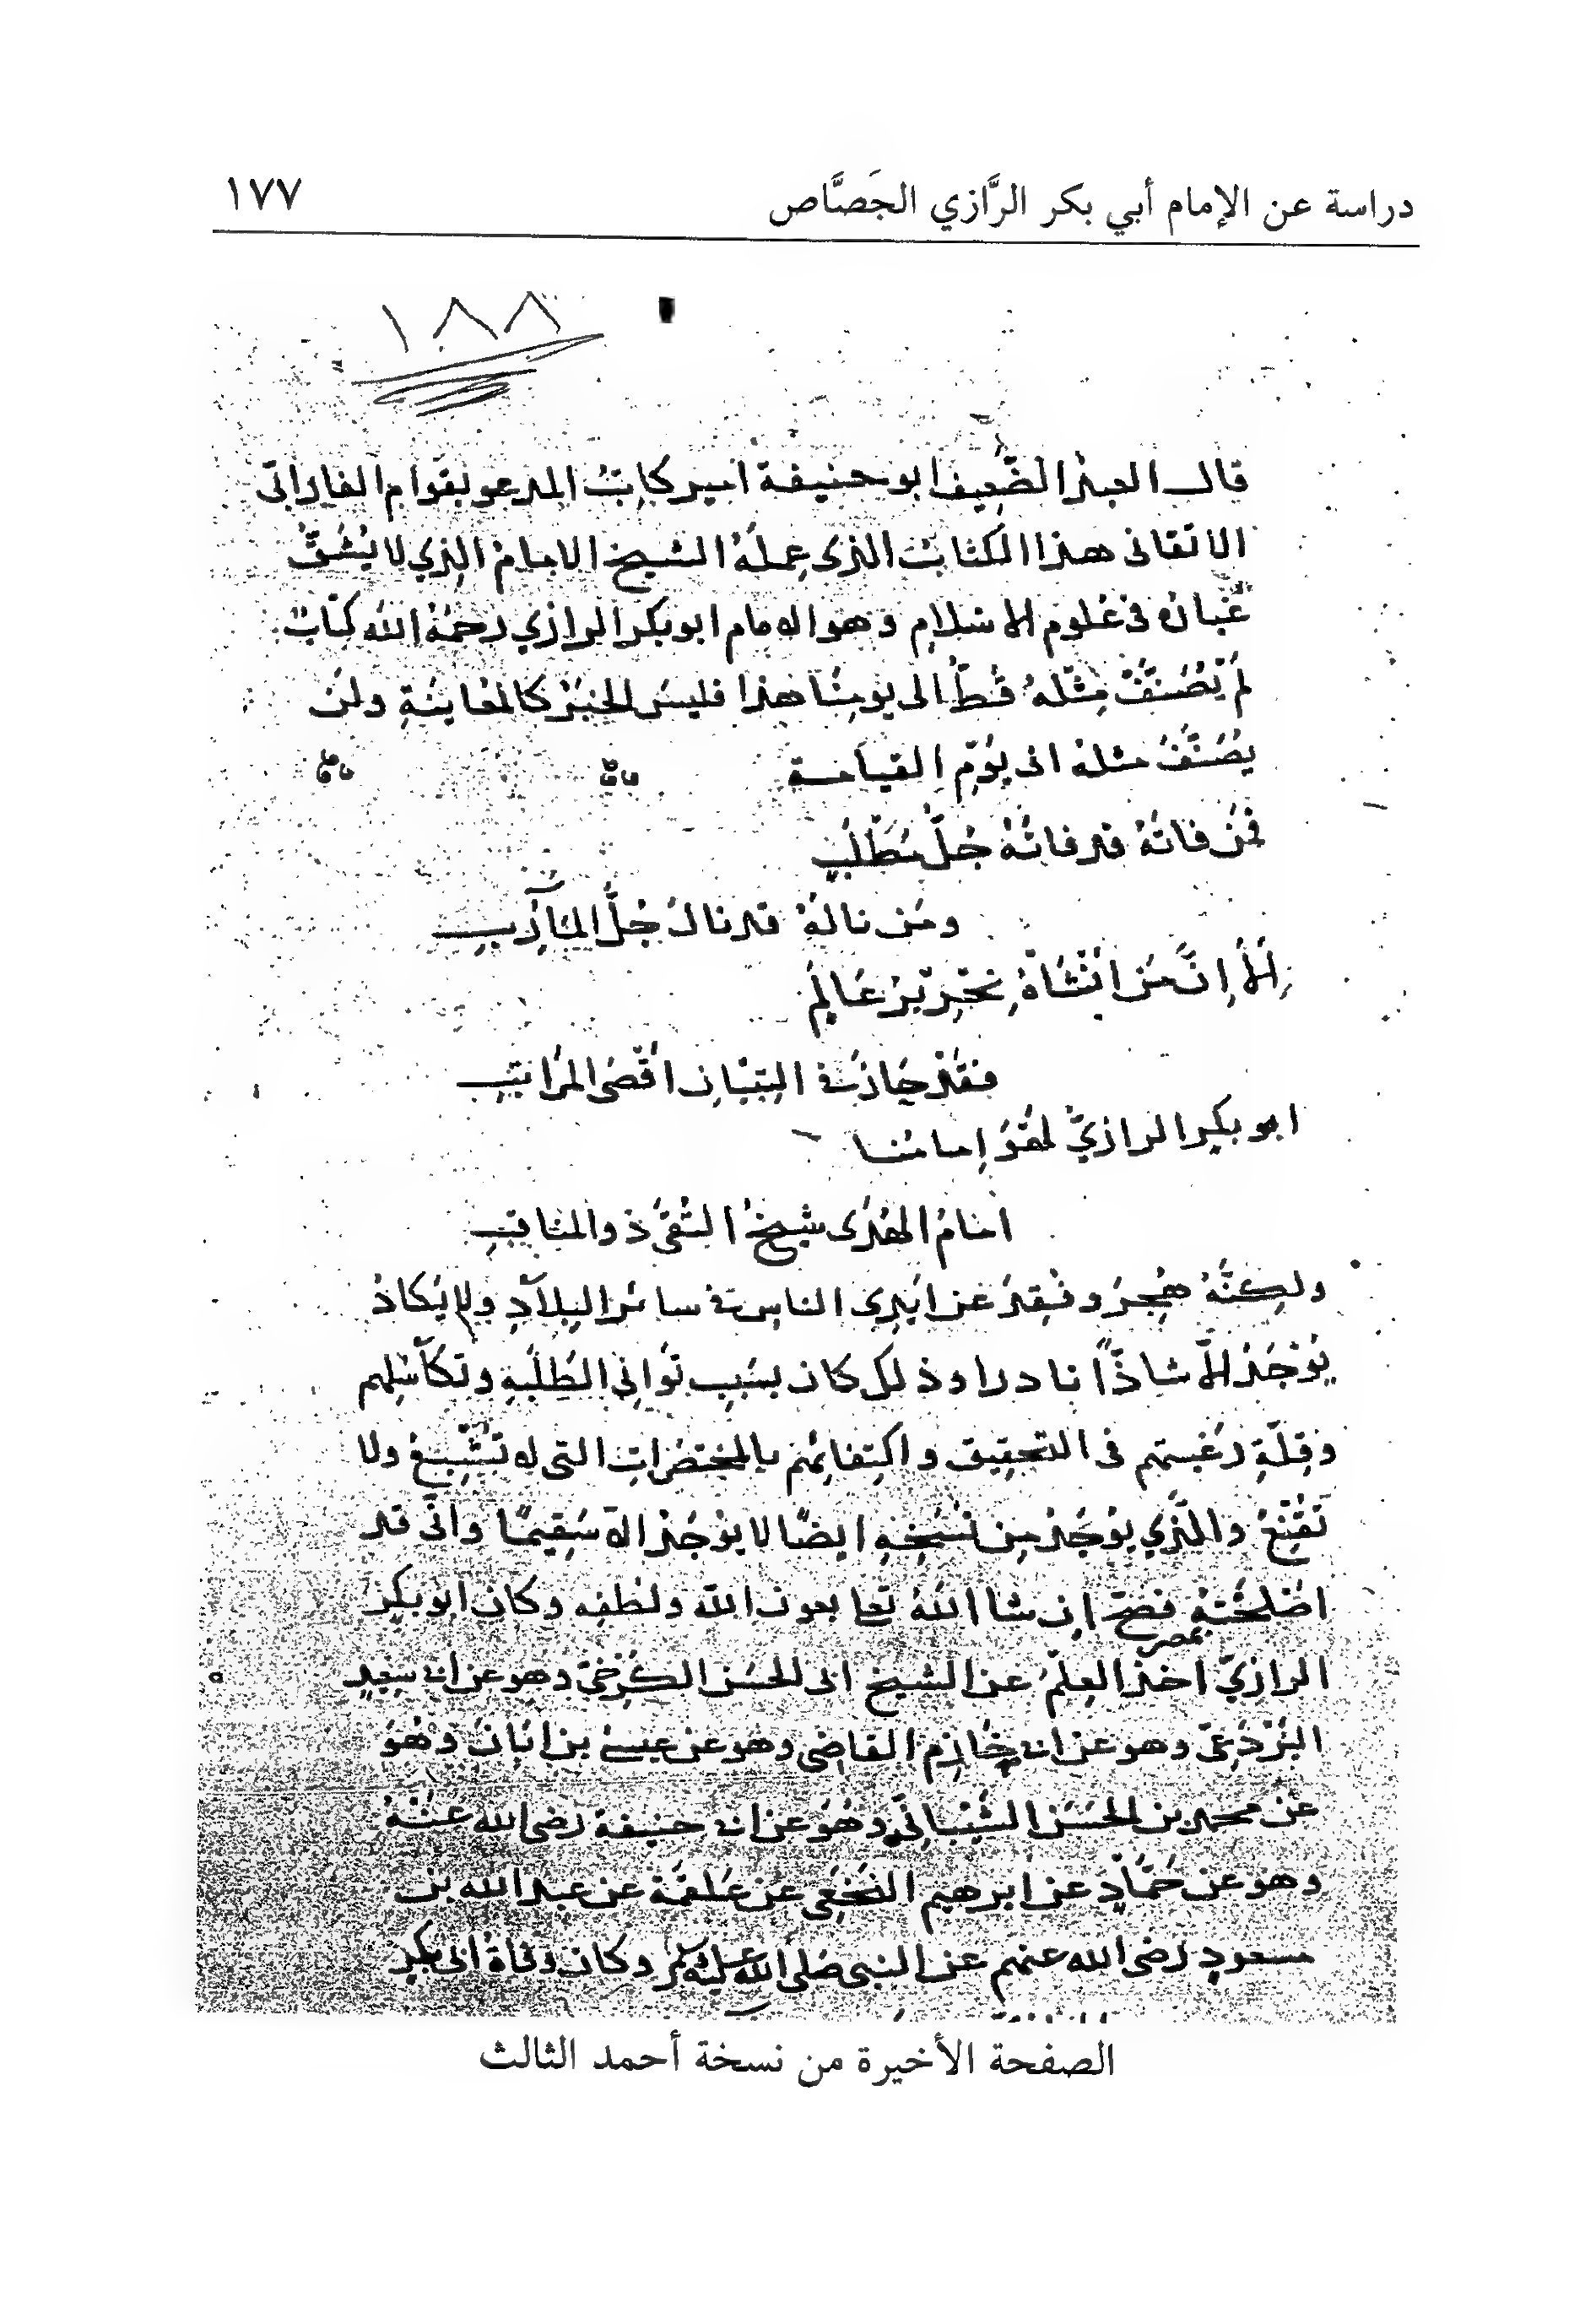 دراسة عن الإمام أبي بكر الرَّازي الجَصَّاص ١٧٧
١٨٨
قال العبد الضَّعِيف ابو حنيفة امير كاتِبُ المدعو بقوام الفارابى
الاتقانى هذا الكتابُ الذى عملهُ الشيخ الامامُ الذِي لا يُشَقُّ
غُبارُه فى عُلومِ الاسلامِ وهو الامام ابو بكر الرازي رحمهُ الله كِتابٌ
لم يُصَنَّفْ مِثْلهُ قطُّ الى يومِنا هذا فليسَ الخبَرُ كالمعَاينةِ ولن
يُصَنَّفُ مثلهُ الى يَوْمِ القيامة
فمَن فاتَهُ قد فاتَهُ جُلُّ مَطْلَبٍ
ومَن نالهُ قد نال جُلَّ المآرِبِ
الا اِنَّ مَن انْشَاهُ نِحْرِيرُ عَالِمٌ
فقَدْ حَازَ فى التِبْيَانِ اقْصَى المَرَاتِبِ
ابو بكرٍ الرازيُّ لهُوَ اِمامُنا
امامُ الهُدَى شيخُ التُقَى ذو المناقبِ
ولكِنَّهُ هُجِرَ وفُقِدَ عن ايْدِى الناسِ فى سائر البِلادِ ولا يَكادُ
يُوْجَدُ الّا شاذًّا نادرا وذلك كان بسَبَبِ تَوَانِى الطَلَبةِ وتكاسُلِهم
وقِلّةِ رَغبتهم فى التحقيق واكتِفائِهم بالمختصَراتِ التى لا تُشْبِعُ ولا
تُقْنِعُ والذِي يوُجَدُ مِن نُسَخِهِ ايضًا لا يوُجَدُ الا سَقِيمًا وانّى قد
اصْلَحْتُهُ فصَحَّ اِن شا اللهُ تعا بعون الله ولطفه وكان ابو بكرٍ
الرازيّ اخذَ العِلمَ عن الشيخ ابى الحسَن الكَرْخِيّ وهو عن ابى سعِيدٍ
البَرْدَعِىّ وهو عن ابى خازِمٍ القاضِى وهو عن عيسى بن ابَانَ وهُوَ
عن محمد بن الحسَن الشَيْبانِىّ وهُوَ عن ابى حنيفة رضى الله عنهُ
وهو عن حَمَّادٍ عن ابرهيم النخَعِى عن علقمَة عن عبد الله بن
مسعودٍ رضى الله عنهم عن النبى صَلى الله عليه وكان وفاةُ ابى بكرٍ
الصفحة الأخيرة من نسخة أحمد الثالث